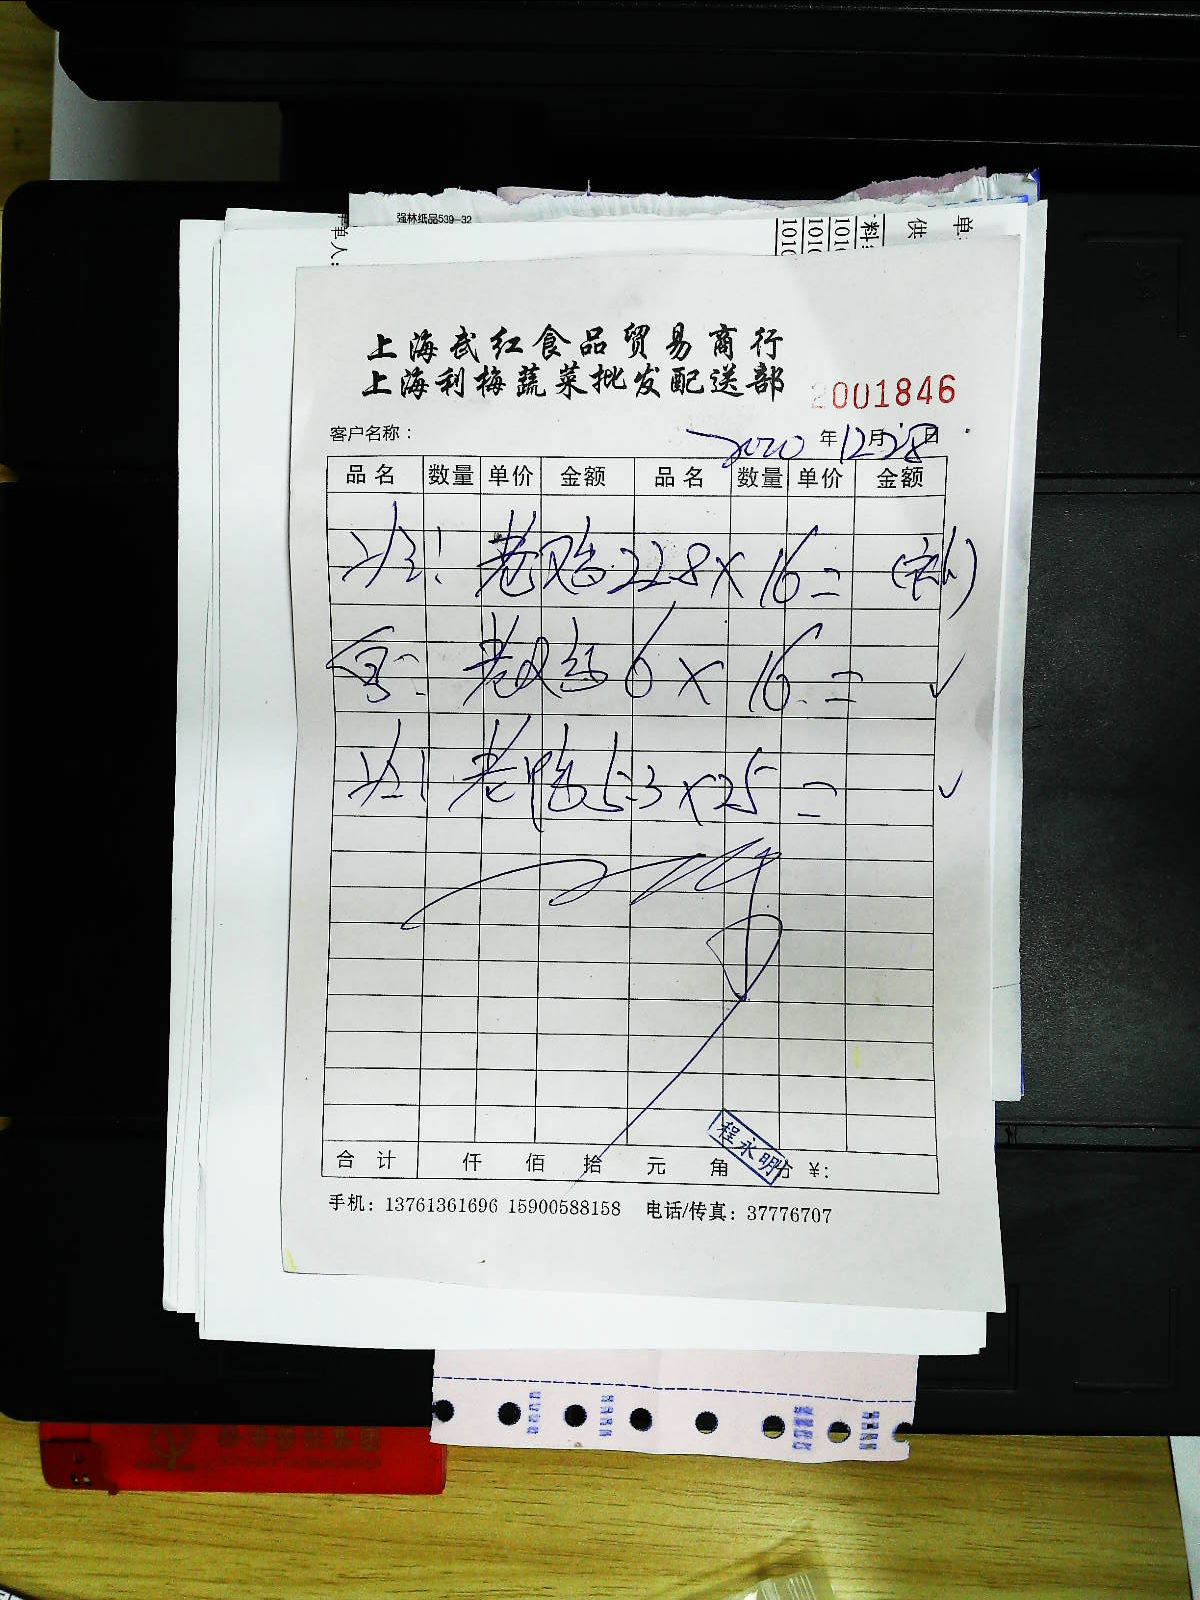 强林纸品539-32
单人:
1010
1010
1010
料
供
单
上海武红食品贸易商行
上海利梅蔬菜批发配送部
2001846
客户名称：
2020年12月28日
品名 数量 单价 金额 品名 数量 单价 金额
老鸡 22.8×16=
老鸡 6×16=
老鸭 5.3×25=
合计 仟 佰 拾 元 角 分 ¥:
程永明
手机：13761361696 15900588158 电话/传真：37776707